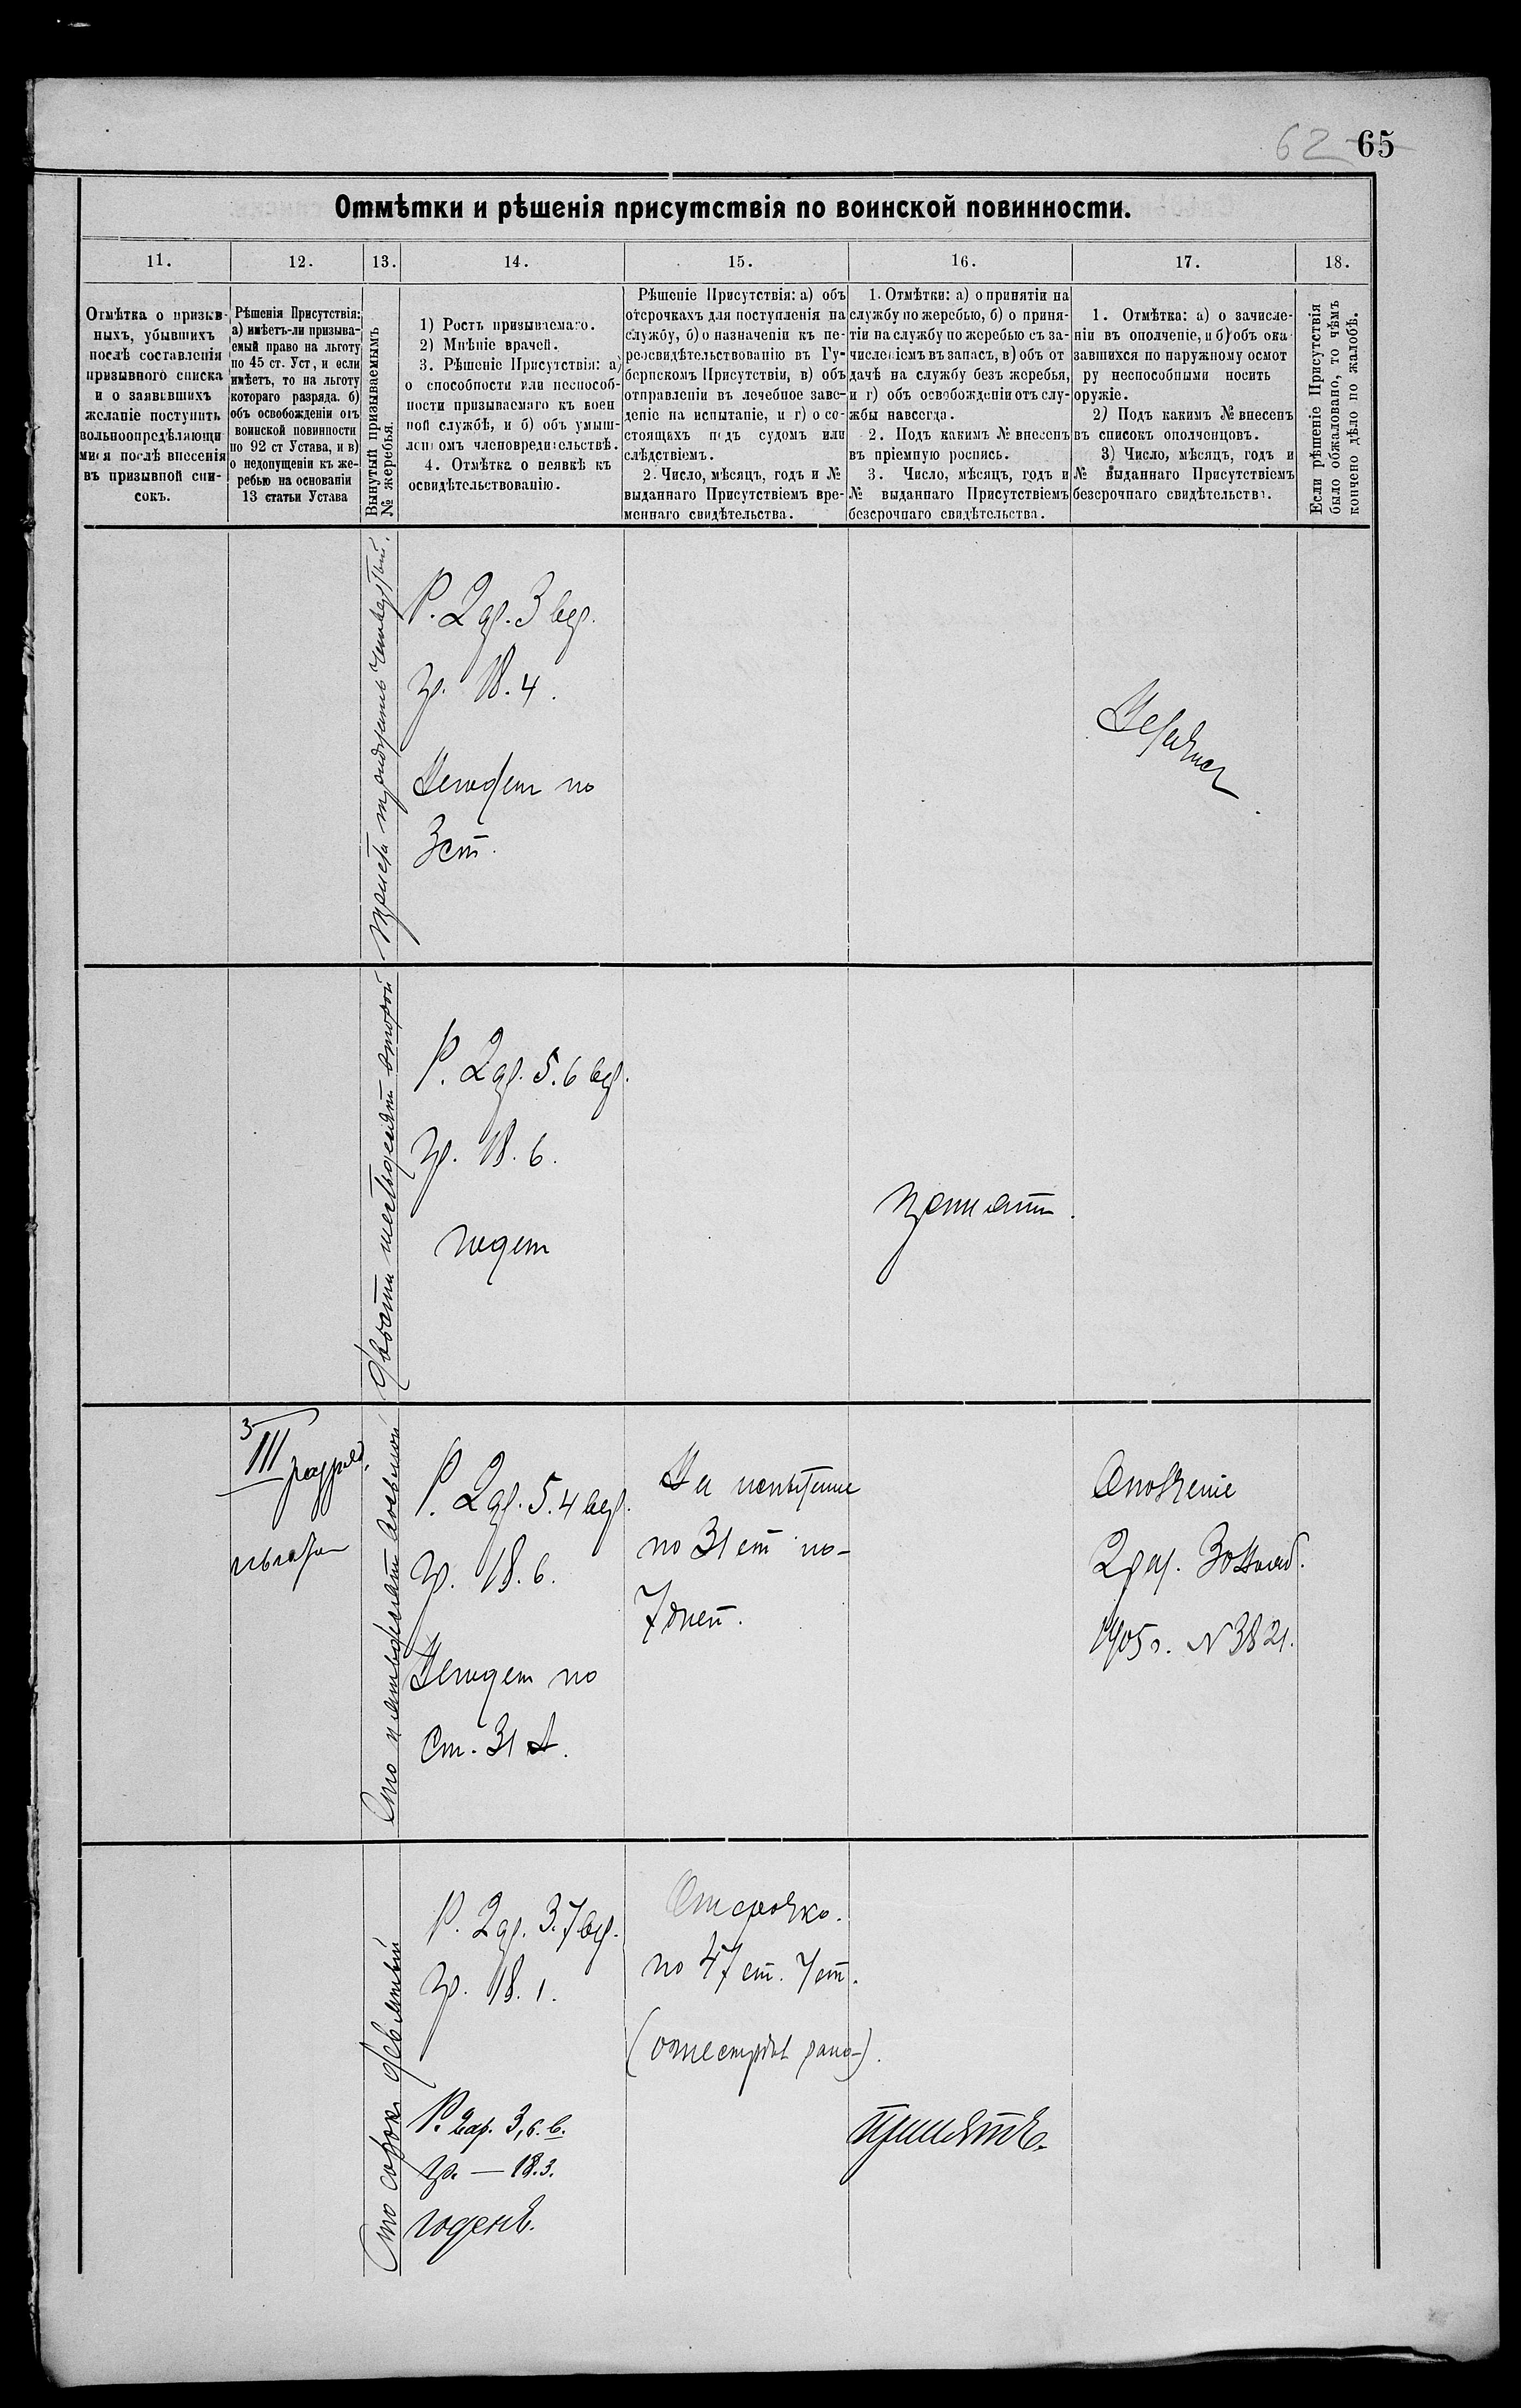 62 65
Отмѣтки и рѣшенія присутствія по воинской повинности.
11. 12. 13. 14. 15. 16. 17. 18.
Отмѣтка о призыв-
ныхъ, убывшихъ
послѣ составленія
призывного списка
и о заявившихъ
желаніе поступить
вольноопредѣляющи
мися послѣ внесенія
въ призывной спи-
сокъ.
Рѣшенія Присутствія:
а) имѣетъ-ли призыва-
емый право на льготу
по 45 ст. Уст, и если
имѣетъ, то на льготу
котораго разряда. б)
объ освобожденіи отъ
воинской повинности
по 92 ст Устава, и в)
о недопущеніи къ же-
ребью на основаніи
13 статьи Устава
Вынутый призываемымъ
№ жеребья.
1) Ростъ призываемаго.
2) Мнѣніе врачей.
3. Рѣшеніе Присутствія: а)
о способности или неспособ-
ности призываемаго къ воен
ной службѣ, и б) объ умыш-
ленномъ членовредительствѣ.
4. Отмѣтка о неявкѣ къ
освидѣтельствованію.
Рѣшеніе Присутствія: а) объ
отсрочкахъ для поступленія на
службу, б) о назначеніи къ пе-
реосвидѣтельствованію въ Гу-
бернскомъ Присутствіи, в) объ
отправленіи въ лечебное заве-
деніе на испытаніе, и г) о со-
стоящихъ подъ судомъ или
слѣдствіемъ.
2. Число, мѣсяцъ, годъ и №
выданнаго Присутствіемъ вре-
меннаго свидѣтельства.
1. Отмѣтки: а) о принятіи на
службу по жеребью, б) о приня-
тіи на службу по жеребью съ за-
численіемъ въ запасъ, в) объ от
дачѣ на службу безъ жеребья,
и г) объ освобожденіи отъ слу-
жбы навсегда.
2. Подъ какимъ № внесенъ
въ пріемную роспись.
3. Число, мѣсяцъ, годъ и
№ выданнаго Присутствіемъ
безсрочнаго свидѣтельства.
1. Отмѣтка: а) о зачисле-
ніи въ ополченіе, и б) объ ока
завшихся по наружному осмот
ру неспособными носить
оружіе.
2) Подъ какимъ № внесенъ
въ списокъ ополченцовъ.
3) Число, мѣсяцъ, годъ и
№ выданнаго Присутствіемъ
безсрочнаго свидѣтельства.
Если рѣшеніе Присутствія
было обжаловано, то чѣмъ
кончено дѣло по жалобѣ.
Триста тридцать четвертый.
Р. 2 ар. 3 вер.
гр. 18.4.
Негоден по
3 ст.
Двѣсти шестьдесят второй
Р. 2 ар. 5.6 вер.
гр. 18.6.
годен
принят.
III разряд.
льгота
Сто пятьдесят восьмой
Р. 2 ар. 5.4 вер.
гр. 18.6.
Негоден по
Ст. 31 А.
На испытание
по 31 ст по
7 дней.
Ополчение
2 раз. 30 Нояб.
1905 г. N 3821.
Сто сорок девятый
Р. 2 ар. 3.7 вер.
гр. 18.1.
Р. 2 ар. 3,6. в.
гр. — 18.3.
годенъ.
Отсрочка.
по 47 ст. 7 ст.
принятъ.